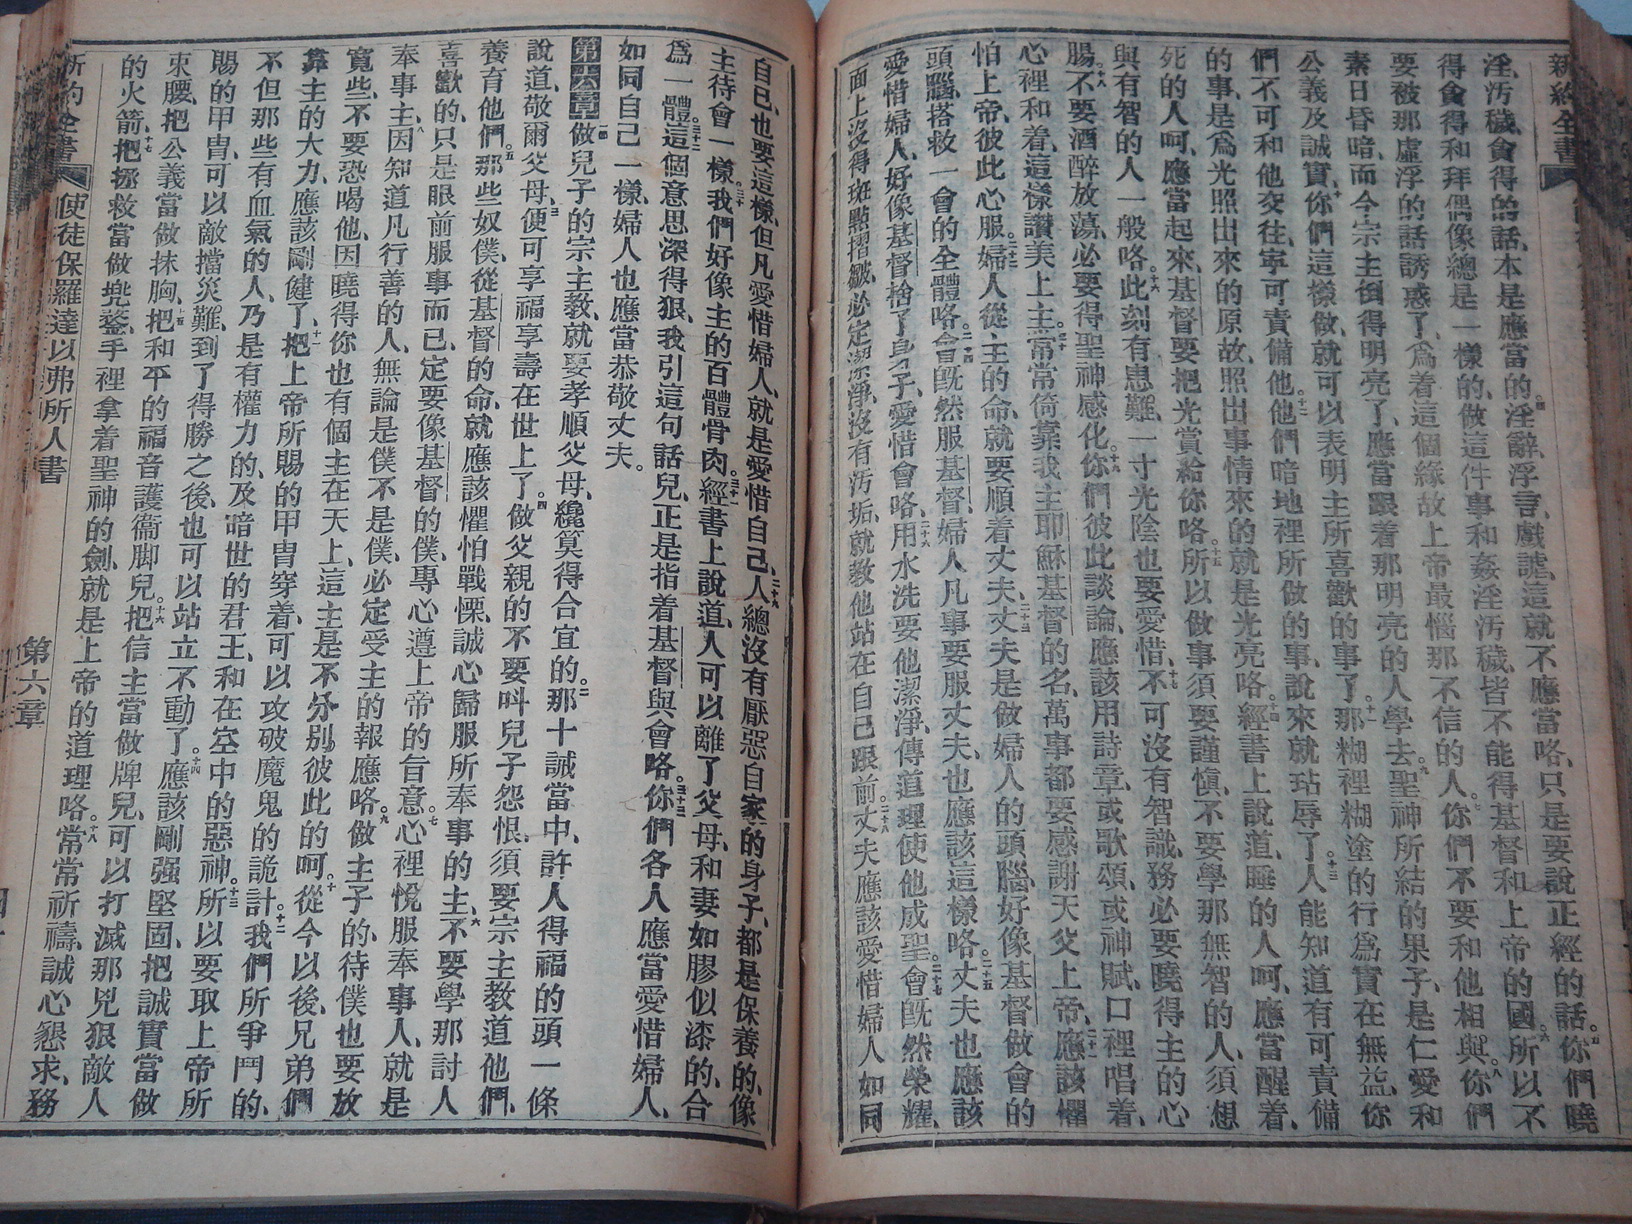 新約全書
淫、汚穢、貪得的話、本是應當的。四淫辭、浮言、戲謔、這就不應當咯、只是要說正經的話。五你們曉
得貪得和拜偶像總是一樣的、做這件事和姦淫汚穢、皆不能得基督和上帝的國。六所以不
要被那虛浮的話誘惑了、爲着這個緣故上帝最惱那不信的人。七你們不要和他相與。八你們
素日昏暗、而今宗主倒得明亮了、應當跟着那明亮的人學去。九聖神所結的果子、是仁愛和
公義及誠實。十你們這樣做、就可以表明主所喜歡的事了。十一那糊裡糊塗的行爲實在無益、你
們不可和他交往、寧可責備他。十二他們暗地裡所做的事、說來就玷辱了。十三人能知道有可責備
的事、是爲光照出來的原故、照出事情來的就是光亮咯。十四經書上說道、睡的人呵、應當醒着、
死的人呵、應當起來、基督要把光賞給你咯。十五所以做事須要謹愼、不要學那無智的人、須想
與有智的人一般咯。十六此刻有患難、一寸光陰也要愛惜、十七不可沒有智識、務必要曉得主的心
腸。十八不要酒醉放蕩、必要得聖神感化。十九你們彼此談論、應該用詩章、或歌頌、或神賦、口裡唱着、
心裡和着、這樣讚美上主。二十常常倚靠我主耶穌基督的名、萬事都要感謝天父上帝、二十一應該懼
怕上帝、彼此心服。二十二婦人從主的命、就要順着丈夫、二十三丈夫是做婦人的頭腦、好像基督做會的
頭腦、搭救一會的全體咯。二十四會旣然服基督、婦人凡事要服丈夫、也應該這樣咯。二十五丈夫也應該
愛惜婦人、好像基督捨了身子、愛惜會咯、二十六用水洗要他潔淨、傳道理使他成聖。二十七會旣然榮耀、
面上沒得斑點摺皺、必定潔淨、沒有汚垢、就教他站在自己跟前。二十八丈夫應該愛惜婦人如同
自己、也要這樣、但凡愛惜婦人、就是愛惜自己、二十九人總沒有厭惡自家的身子、都是保養的、像
主待會一樣。三十我們好像主的百體骨肉。三十一經書上說道、人可以離了父母、和妻如膠似漆的、合
爲一體。三十二這個意思深得狠、我引這句話兒、正是指着基督與會咯。三十三你們各人應當愛惜婦人、
如同自己一樣、婦人也應當恭敬丈夫。
第六章一做兒子的宗主教、就要孝順父母、纔算得合宜的。二那十誡當中、許人得福的頭一條
說道、敬爾父母、三便可享福享壽在世上了。四做父親的不要叫兒子怨恨、須要宗主教道他們、
養育他們。五那些奴僕、從基督的命、就應該懼怕戰慄、誠心歸服所奉事的主、六不要學那討人
喜歡的、只是眼前服事而已、定要像基督的僕、專心遵上帝的旨意、七心裡悅服奉事人、就是
奉事主、八因知道凡行善的人、無論是僕不是僕、必定受主的報應咯。九做主子的、待僕也要放
寬些、不要恐喝他、因曉得你也有個主在天上、這主是不分別彼此的呵。十從今以後、兄弟們
靠主的大力、應該剛健了、十一把上帝所賜的甲冑穿着、可以攻破魔鬼的詭計。十二我們所爭鬥的、
不但那些有血氣的人、乃是有權力的、及暗世的君王、和在空中的惡神。十三所以要取上帝所
賜的甲冑、可以敵擋災難、到了得勝之後、也可以站立不動了。十四應該剛强堅固、把誠實當做
束腰、把公義當做抹胸、十五把和平的福音護衞脚兒、十六把信主當做牌兒、可以打滅那兇狠敵人
的火箭、十七把拯救當做兠鍪、手裡拿着聖神的劍、就是上帝的道理咯、十八常常祈禱、誠心懇求、務
新約全書 使徒保羅達以弗所人書 第六章